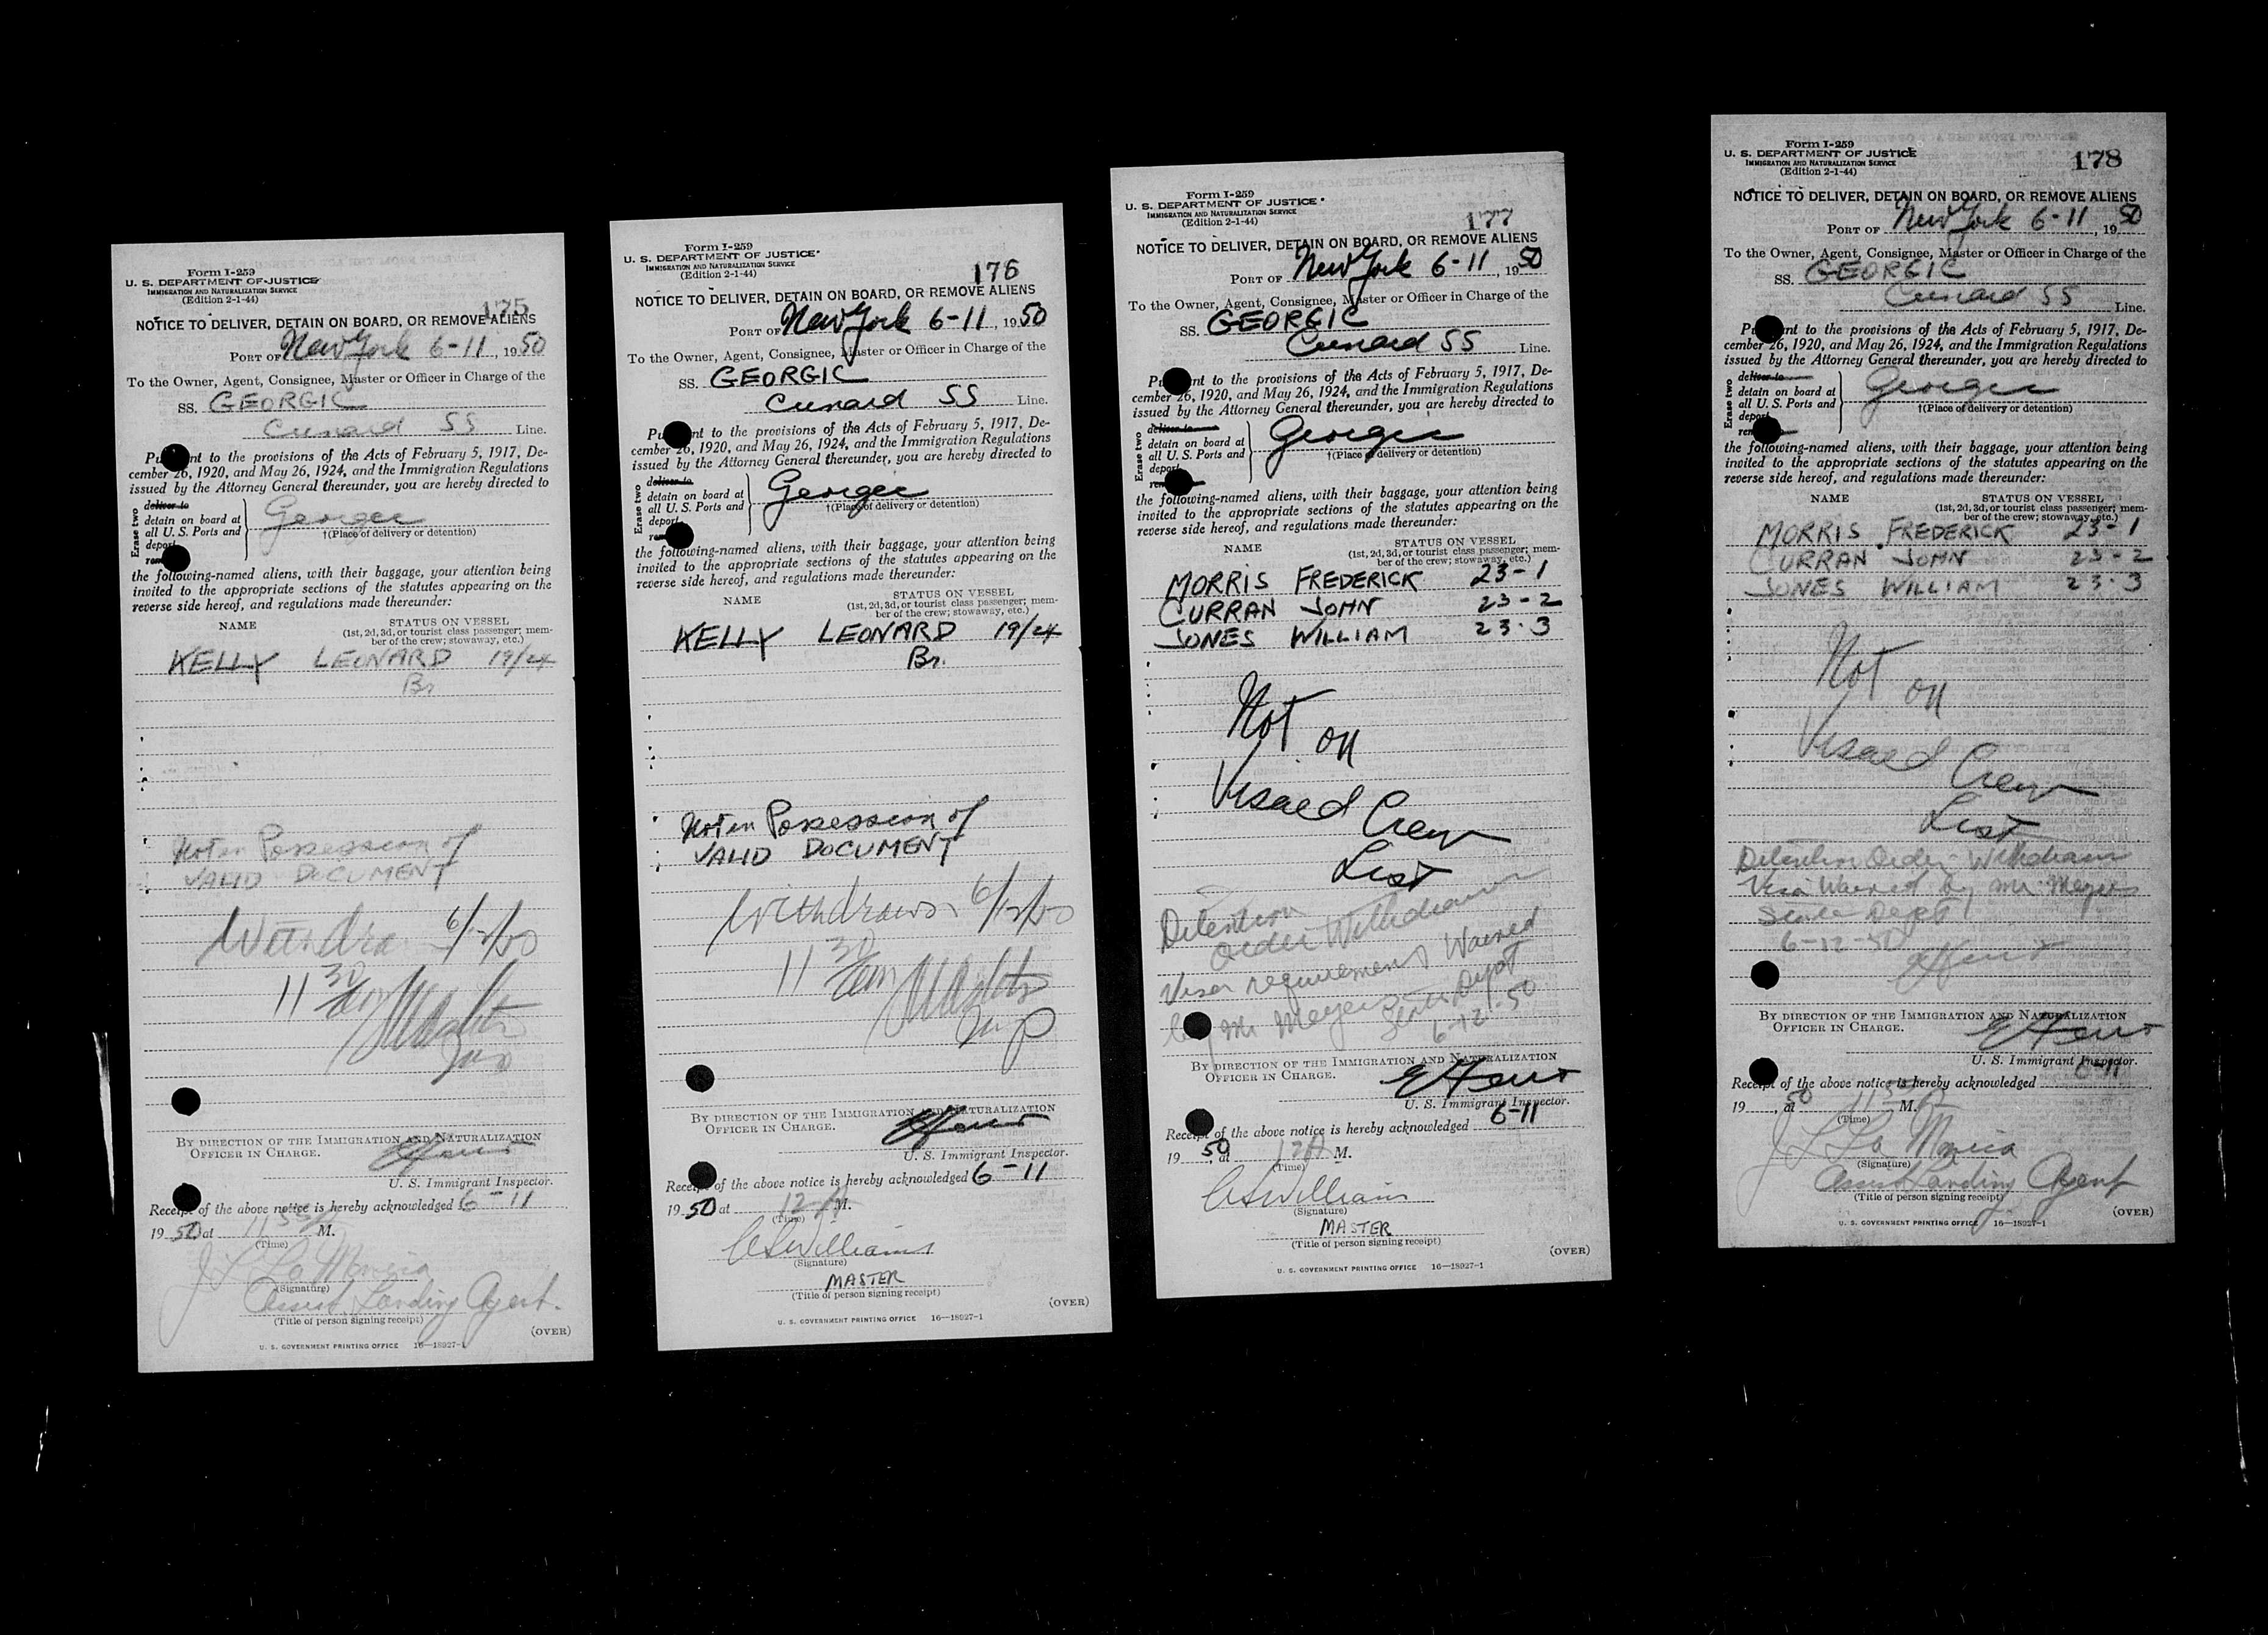 Form I-259
U. S. DEPARTMENT OF JUSTICE
IMMIGRATION AND NATURALIZATION SERVICE
(Edition 2-1-44)
175
NOTICE TO DELIVER, DETAIN ON BOARD, OR REMOVE ALIENS
PORT OF New York 6-11, 1950
To the Owner, Agent, Consignee, Master or Officer in Charge of the
SS. GEORGIC
Cunard SS Line.
nt to the provisions of the Acts of February 5, 1917, De-
cember 26, 1920, and May 26, 1924, and the Immigration Regulations
issued by the Attorney General thereunder, you are hereby directed to
Erase two
deliver to
detain on board at
all U. S. Ports and
deport
Georgic
†(Place of delivery or detention)
the following-named aliens, with their baggage, your attention being
invited to the appropriate sections of the statutes appearing on the
reverse side hereof, and regulations made thereunder:
NAME STATUS ON VESSEL
(1st, 2d, 3d, or tourist class passenger; mem-
ber of the crew; stowaway, etc.)
KELLY LEONARD 19/24
Br.
Not in Possession of
VALID DOCUMENT
6/12/50
11 30
BY DIRECTION OF THE IMMIGRATION AND NATURALIZATION
OFFICER IN CHARGE.
U. S. Immigrant Inspector.
Receipt of the above notice is hereby acknowledged 6-11
1950 at M.
(Time)
J L La Monica
(Signature)
Asst Landing Agent.
(Title of person signing receipt)
(OVER)
U. S. GOVERNMENT PRINTING OFFICE 16-18927-1
Form I-259
U. S. DEPARTMENT OF JUSTICE
IMMIGRATION AND NATURALIZATION SERVICE
(Edition 2-1-44)
176
NOTICE TO DELIVER, DETAIN ON BOARD, OR REMOVE ALIENS
PORT OF New York 6-11, 1950
To the Owner, Agent, Consignee, Master or Officer in Charge of the
SS. GEORGIC
Cunard SS Line.
nt to the provisions of the Acts of February 5, 1917, De-
cember 26, 1920, and May 26, 1924, and the Immigration Regulations
issued by the Attorney General thereunder, you are hereby directed to
Erase two
deliver to
detain on board at
all U. S. Ports and
deport
Georgic
†(Place of delivery or detention)
the following-named aliens, with their baggage, your attention being
invited to the appropriate sections of the statutes appearing on the
reverse side hereof, and regulations made thereunder:
NAME STATUS ON VESSEL
(1st, 2d, 3d, or tourist class passenger; mem-
ber of the crew; stowaway, etc.)
KELLY LEONARD 19/24
Br.
Not in Possession of
VALID DOCUMENT
Withdrawn 6/12/50
11 30 am
BY DIRECTION OF THE IMMIGRATION AND NATURALIZATION
OFFICER IN CHARGE.
U. S. Immigrant Inspector.
Receipt of the above notice is hereby acknowledged 6-11
1950 at 12 A M.
(Time)
Williams
(Signature)
MASTER
(Title of person signing receipt)
(OVER)
U. S. GOVERNMENT PRINTING OFFICE 16-18927-1
Form I-259
U. S. DEPARTMENT OF JUSTICE
IMMIGRATION AND NATURALIZATION SERVICE
(Edition 2-1-44)
177
NOTICE TO DELIVER, DETAIN ON BOARD, OR REMOVE ALIENS
PORT OF New York 6-11, 1950
To the Owner, Agent, Consignee, Master or Officer in Charge of the
SS. GEORGIC
Cunard SS Line.
nt to the provisions of the Acts of February 5, 1917, De-
cember 26, 1920, and May 26, 1924, and the Immigration Regulations
issued by the Attorney General thereunder, you are hereby directed to
Erase two
deliver to
detain on board at
all U. S. Ports and
deport
Georgic
†(Place of delivery or detention)
the following-named aliens, with their baggage, your attention being
invited to the appropriate sections of the statutes appearing on the
reverse side hereof, and regulations made thereunder:
NAME STATUS ON VESSEL
(1st, 2d, 3d, or tourist class passenger; mem-
ber of the crew; stowaway, etc.)
MORRIS FREDERICK 23-1
CURRAN JOHN 23-2
JONES WILLIAM 23-3
Not on
Visaed Crew
List
Detention
Order Withdrawn
Visa requirement Waived
by Mr Meyers State Dept
6-12-50
BY DIRECTION OF THE IMMIGRATION AND NATURALIZATION
OFFICER IN CHARGE.
U. S. Immigrant Inspector.
Receipt of the above notice is hereby acknowledged 6-11
1950, at 12 A M.
(Time)
Williams
(Signature)
MASTER
(Title of person signing receipt)
(OVER)
U. S. GOVERNMENT PRINTING OFFICE 16-18927-1
Form I-259
U. S. DEPARTMENT OF JUSTICE
IMMIGRATION AND NATURALIZATION SERVICE
(Edition 2-1-44)
178
NOTICE TO DELIVER, DETAIN ON BOARD, OR REMOVE ALIENS
PORT OF New York 6-11, 1950
To the Owner, Agent, Consignee, Master or Officer in Charge of the
SS. GEORGIC
Cunard SS Line.
nt to the provisions of the Acts of February 5, 1917, De-
cember 26, 1920, and May 26, 1924, and the Immigration Regulations
issued by the Attorney General thereunder, you are hereby directed to
Erase two
deliver to
detain on board at
all U. S. Ports and
deport
Georgic
†(Place of delivery or detention)
the following-named aliens, with their baggage, your attention being
invited to the appropriate sections of the statutes appearing on the
reverse side hereof, and regulations made thereunder:
NAME STATUS ON VESSEL
(1st, 2d, 3d, or tourist class passenger; mem-
ber of the crew; stowaway, etc.)
MORRIS FREDERICK 23-1
CURRAN JOHN 23-2
JONES WILLIAM 23-3
Not on
Visaed Crew
List
Detention Order Withdrawn
Visa Waived by Mr Meyers
State Dept
6-12-50
BY DIRECTION OF THE IMMIGRATION AND NATURALIZATION
OFFICER IN CHARGE.
U. S. Immigrant Inspector.
Receipt of the above notice is hereby acknowledged 6-11
1950, at M.
(Time)
J L La Monica
(Signature)
Asst Landing Agent
(Title of person signing receipt)
(OVER)
U. S. GOVERNMENT PRINTING OFFICE 16-18927-1